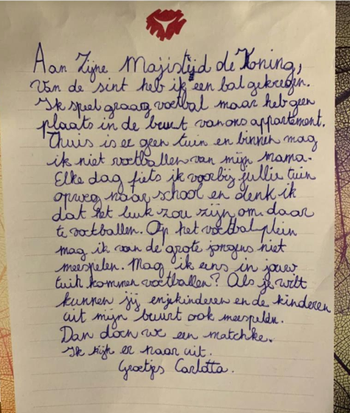 Aan Zijne Majistijd de Koning,
Van de sint heb ik een bal gekregen.
Ik speel graag voetbal maar heb geen
plaats in de buurt van ons appartement.
Thuis is er geen tuin en binnen mag
ik niet voetballen van mijn mama.
Elke dag fiets ik voorbij jullie tuin
opweg naar school en denk ik
dat het leuk zou zijn om daar
te voetballen. Op het voetbalplein
mag ik van de grote jongens niet
meespelen. Mag ik eens in jouw
tuit kommen voetballen? Als je wilt
kunnen jij en je kinderen en de kinderen
uit mijn buurt ook meespelen.
Dan doen we een matchke.
Ik kijk er naar uit.
Groetjes Carlotta.